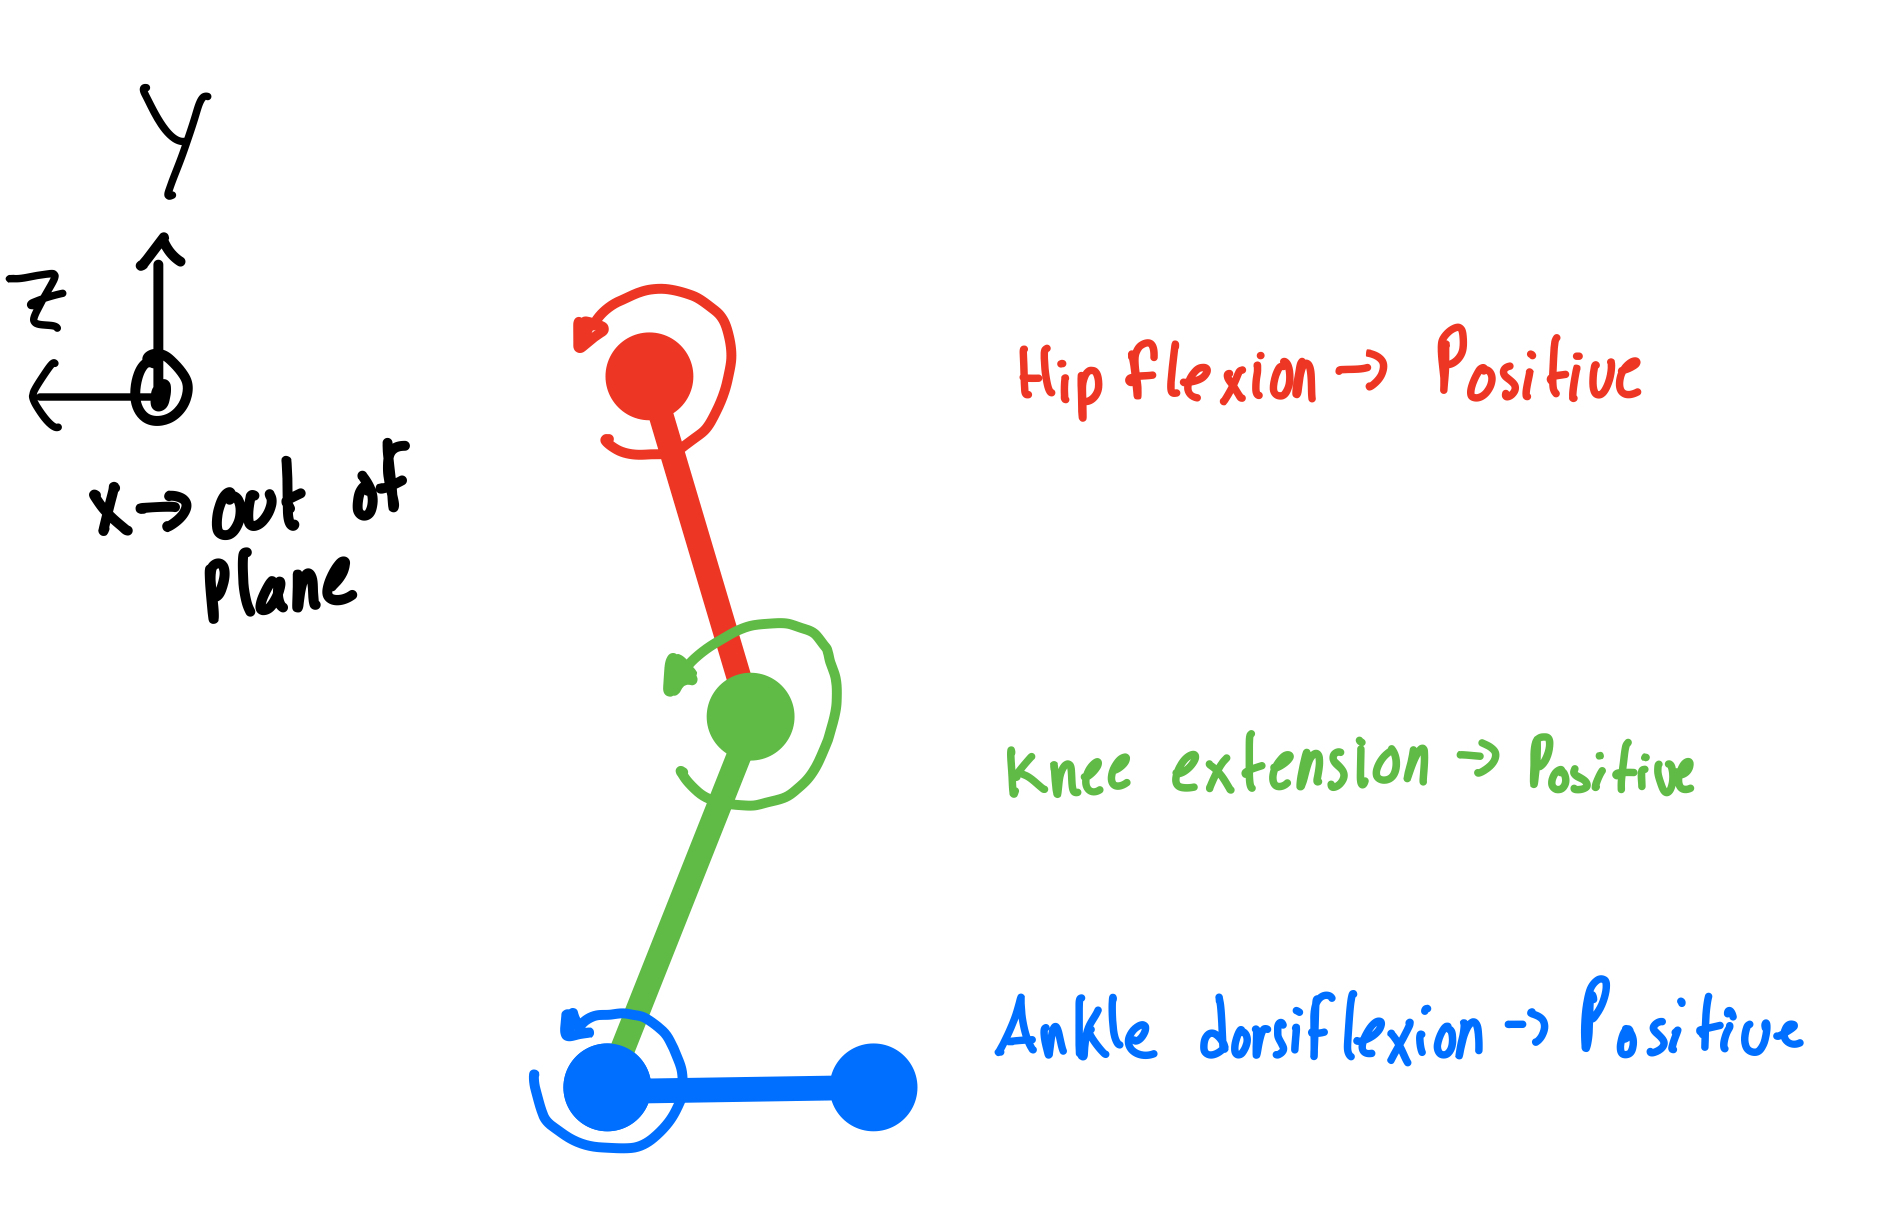 Y
Z
x → out of
plane
Hip flexion → Positive
Knee extension → Positive
Ankle dorsiflexion → Positive